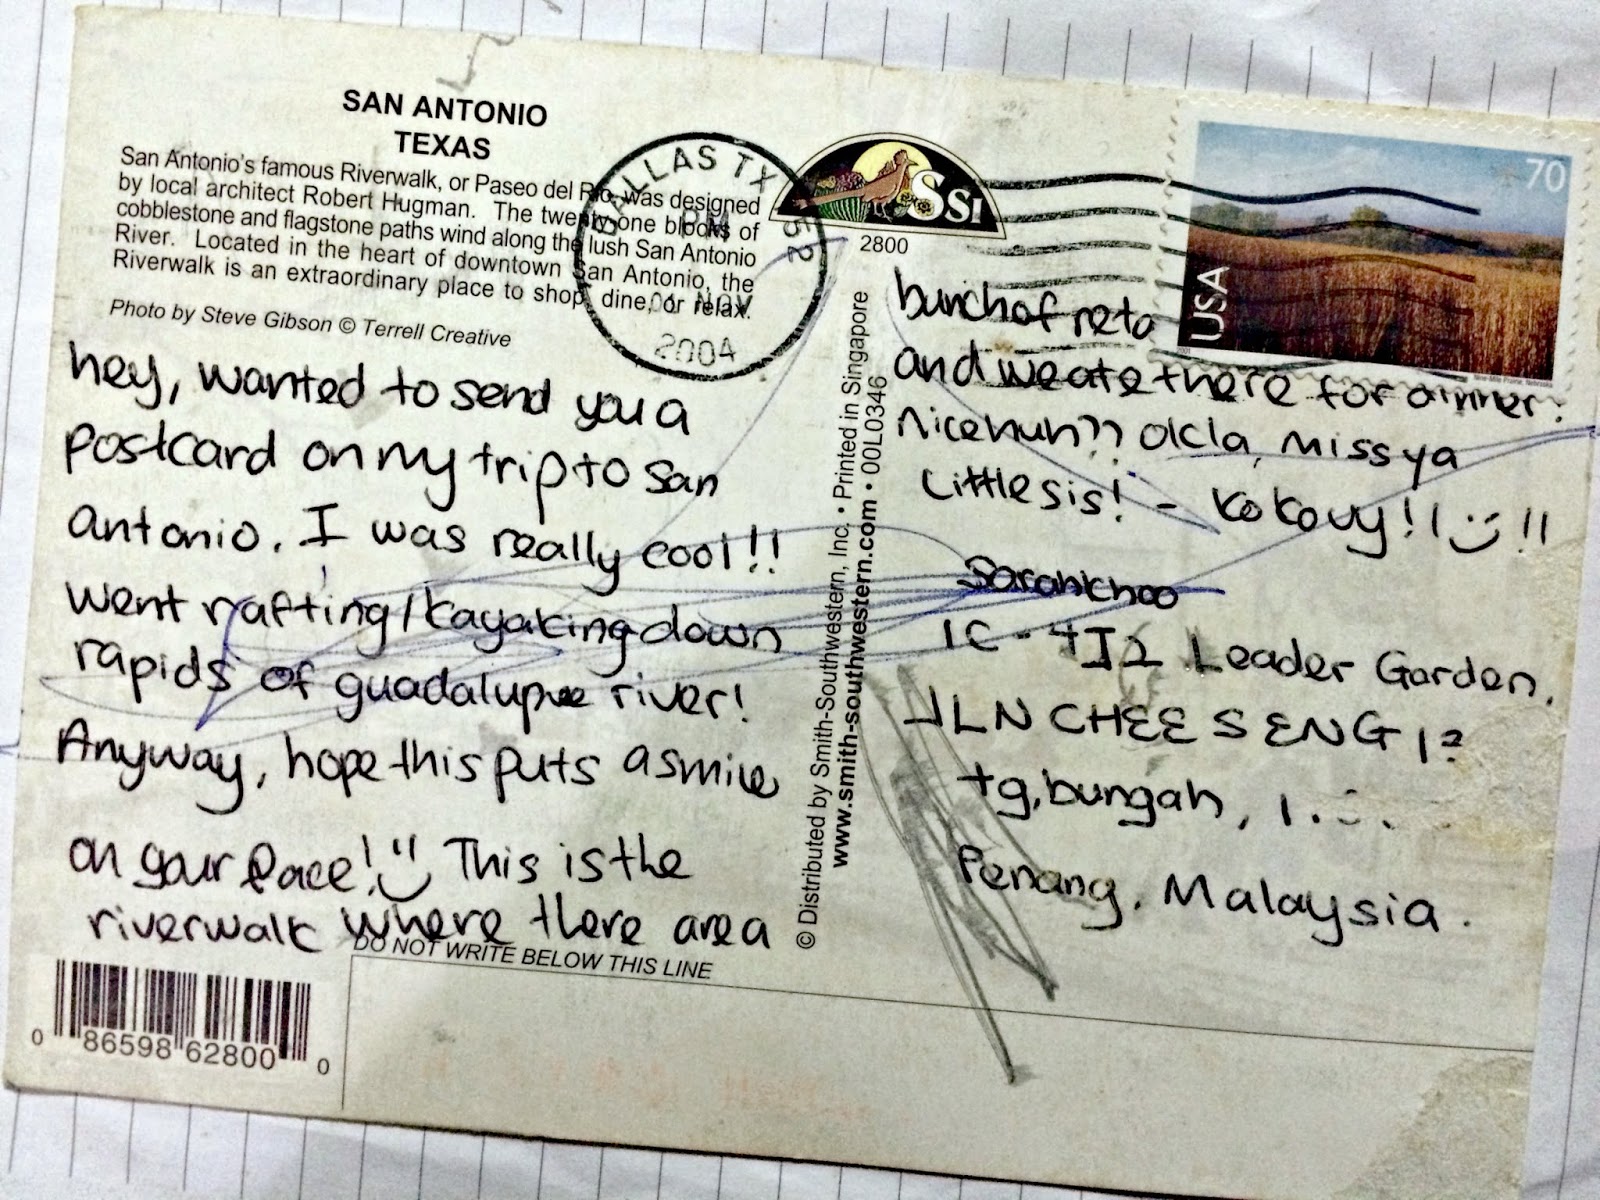 SAN ANTONIO
TEXAS
San Antonio's famous Riverwalk, or Paseo del Rio, was designed
by local architect Robert Hugman. The twenty-one blocks of
cobblestone and flagstone paths wind along the lush San Antonio
River. Located in the heart of downtown San Antonio, the
Riverwalk is an extraordinary place to shop, dine, or relax.
Photo by Steve Gibson © Terrell Creative
DALLAS TX 752
PM
NOV
2004
hey, wanted to send you a
postcard on my trip to San
antonio. I was really cool!!
went rafting/kayaking down
rapids of guadalupue river!
Anyway, hope this puts a smile
on your face! This is the
riverwalk where there are a
DO NOT WRITE BELOW THIS LINE
0 86598 62800 0
SSI
2800
© Distributed by Smith-Southwestern, Inc. • Printed in Singapore
www.smith-southwestern.com • 00L0346
70
USA
bunch of resto
and we ate there for dinner.
nice huh?? okla, miss ya
little sis! - Ko Kovy!! !!
Sarah Choo
1C - 4I2 Leader Garden,
JLN CHEE SENG
tg, bungah,
Penang, Malaysia.